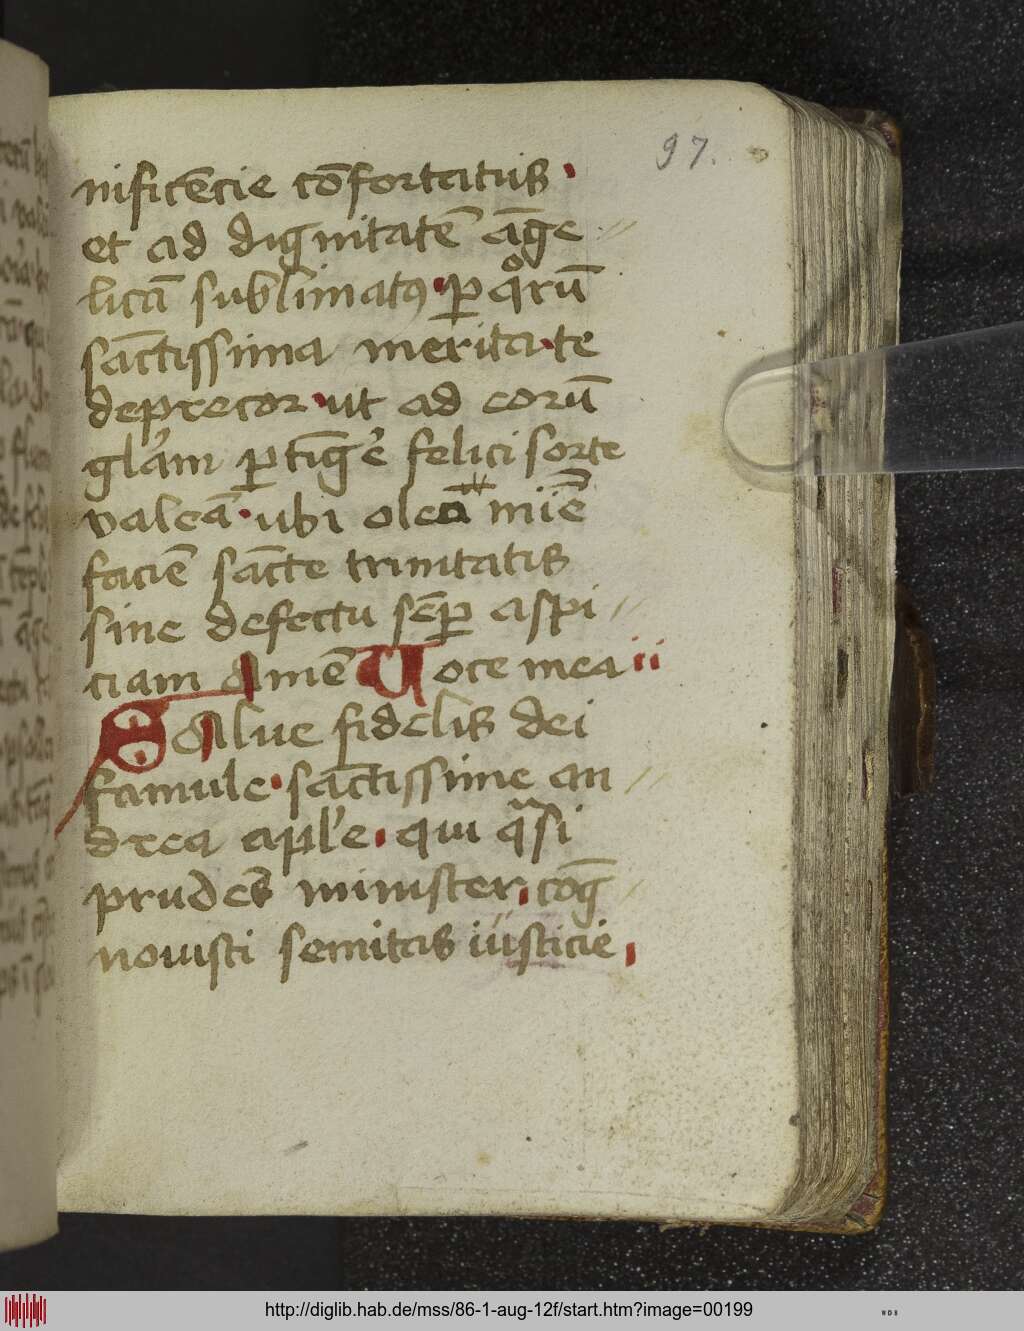 97.
nificēcie cōfortatus
et ad dignitatē āge
licā sublimatꝰ ꝑ qͦrū
sāctissima merita te
deprecor ut ad eorū
glʼam ꝑtīgʼe felici sorte
valeā ubi
faciē sācte trinitatis
sine defectu sēꝑ aspi
ciam Amē Uoce mea ii
SAlue fidelis dei
famule sāctissime an
drea aplʼe qui qᵃsi
prudēs minister coḡ
novisti semitas iusticie
http://diglib.hab.de/mss/86-1-aug-12f/start.htm?image=00199